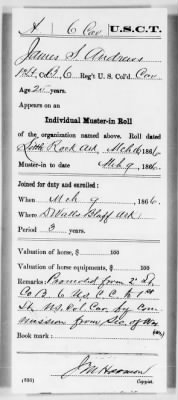 A | 6 Cav | U.S.C.T.
James S. Andrews
1st Lt. Co. A, 6 Reg't U. S. Col'd Cav
Age 20 years.
Appears on an
Individual Muster-in Roll
of the organization named above. Roll dated
Little Rock Ark, Mch 6, 1866
Muster-in to date Mch 9, 1866.
Joined for duty and enrolled:
When Mch 9, 1866.
Where D Valls Bluff Ark
Period 3 years.
Valuation of horse, $ 100
Valuation of horse equipments, $ 100
Remarks: Promoted from 2" Lt.
Co B. 6 U.S.C.C. to 1st
Lt. U.S. Col Cav by com
mission from Sec. of War
Book mark:
J M Harmon
(636) Copyist.